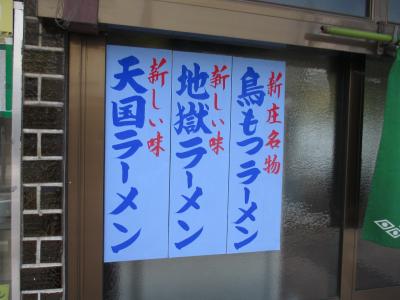 新庄名物
鳥もつラーメン
新しい味
地獄ラーメン
新しい味
天国ラーメン